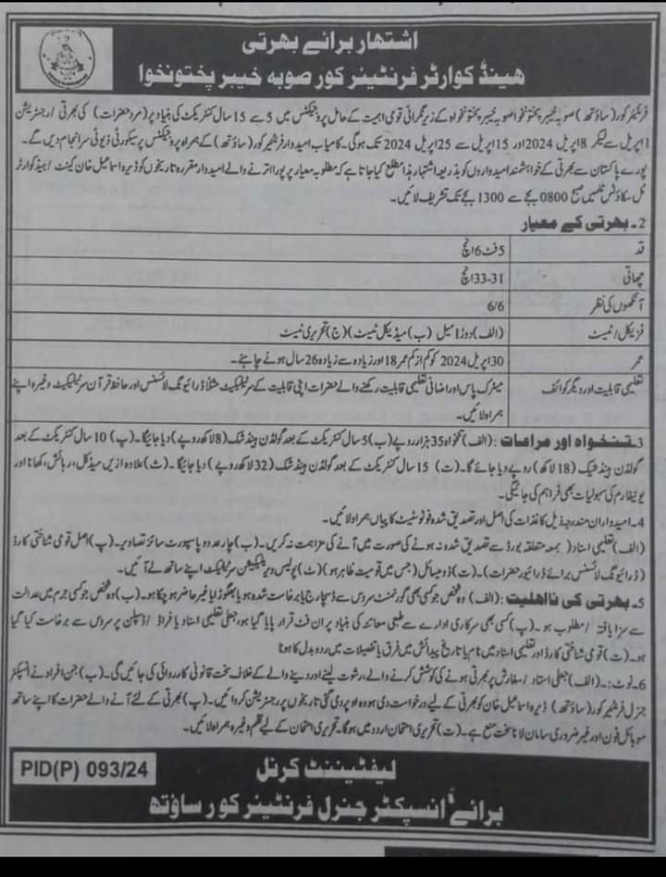 اشتہار برائے بھرتی
ہیڈ کوارٹر فرنٹیئر کور صوبہ خیبر پختونخوا
فرنٹیئر کور (ساؤتھ) صوبہ خیبر پختونخوا صوبہ خیبر پختونخواہ کے زیر نگرانی قومی اہمیت کے حامل پروجیکٹس میں 5 سے 15 سال کنٹریکٹ کی بنیاد پر (مرد حضرات) کی بھرتی / رجسٹریشن
1 اپریل سے لیکر 8 اپریل 2024 اور 15 اپریل سے 25 اپریل 2024 تک ہوگی۔ کامیاب امیدوار فرنٹیئر کور (ساؤتھ) کے ہمراہ پروجیکٹس پر سیکورٹی ڈیوٹی سرانجام دیں گے۔
پورے پاکستان سے بھرتی کے خواہشمند امیدواروں کو بذریعہ اشتہار ہذا مطلع کیا جاتا ہے کہ مطلوبہ معیار پر پورا اترنے والے امیدوار مقررہ تاریخوں کو ڈیرہ اسماعیل خان کینٹ / ہیڈ کوارٹر
ٹل سکاؤٹس ٹل میں صبح 0800 بجے سے 1300 بجے تک تشریف لائیں۔
2۔ بھرتی کے معیار
قد 5 فٹ 6 انچ
چھاتی 31-33 انچ
آنکھوں کی نظر 6/6
فزیکل / ٹیسٹ (الف) دوڑ 1 میل (ب) میڈیکل ٹیسٹ (ج) تحریری ٹیسٹ
عمر 30 اپریل 2024 کو کم از کم عمر 18 اور زیادہ سے زیادہ 26 سال ہونے چاہئے۔
تعلیمی قابلیت اور دیگر کوائف میٹرک پاس اور اضافی تعلیمی قابلیت رکھنے والے حضرات اپنی قابلیت کے سرٹیفکیٹ مثلاً ڈرائیونگ لائسنس اور حافظ قرآن سرٹیفکیٹ وغیرہ اپنے
ہمراہ لائیں۔
3۔ تنخواہ اور مراعات : (الف) تنخواہ 35 ہزار روپے (ب) 5 سال کنٹریکٹ کے بعد گولڈن ہینڈ شیک (8 لاکھ روپے) دیا جائیگا۔ (پ) 10 سال کنٹریکٹ کے بعد
گولڈن ہینڈ شیک (18 لاکھ) روپے دیا جائے گا۔ (ت) 15 سال کنٹریکٹ کے بعد گولڈن ہینڈ شیک (32 لاکھ روپے) دیا جائیگا۔ (ث) علاوہ ازیں میڈیکل، رہائش، کھانا اور
یونیفارم کی سہولیات بھی فراہم کی جائیگی۔
4۔ امیدواران مندرجہ ذیل کاغذات کی اصل اور تصدیق شدہ فوٹوسٹیٹ کاپیاں ہمراہ لائیں۔
(الف) تعلیمی اسناد (بمعہ متعلقہ بورڈ سے تصدیق شدہ نہ ہونے کی صورت میں آنے کی مزاحمت نہ کریں۔ (ب) چار عدد پاسپورٹ سائز تصاویر۔ (پ) اصل قومی شناختی کارڈ
(ڈرائیونگ لائسنس برائے ڈرائیور حضرات)۔ (ت) ڈومیسائل (جس میں قومیت ظاہر ہو) (ٹ) پولیس ویریفکیشن سرٹیفکیٹ اپنے ساتھ لے آئیں۔
5۔ بھرتی کی نااہلیت : (الف) وہ شخص جو کسی بھی گورنمنٹ سروس سے ڈسچارج یا برخاست شدہ ہو یا بھگوڑا یا غیر حاضر ہو چکا ہو۔ (ب) وہ شخص جو کسی جرم میں عدالت
سے سزا یافتہ / مطلوب ہو۔ (پ) کسی بھی سرکاری ادارے سے طبی معائنہ کی بنیاد پر ان فٹ قرار پایا گیا ہو، جعلی تعلیمی اسناد یا فراڈ / ڈسپلن پر سروس سے برخاست کیا گیا
ہو۔ (ت) قومی شناختی کارڈ اور تعلیمی اسناد میں نام یا تاریخ پیدائش میں فرق یا تفصیلات میں ردوبدل کا ہونا
6۔ نوٹ:۔ (الف) جعلی اسناد / سفارش پر بھرتی ہونے کی کوشش کرنے والے، رشوت لینے اور دینے والے کے خلاف سخت قانونی کارروائی کی جائیں گی۔ (ب) جن افراد نے انسپکٹر
جنرل فرنٹیئر کور (ساؤتھ) ڈیرہ اسماعیل خان کو بھرتی کے لیے درخواست دی ہو وہ اوپر دی گئی تاریخوں پر رجسٹریشن کروائیں۔ (پ) بھرتی کے لئے آنے والے حضرات کا اپنے ساتھ
موبائل فون اور غیر ضروری سامان لانا سخت منع ہے۔ (ت) تحریری امتحان اردو میں ہوگا۔ تحریری امتحان کے لیے قلم وغیرہ ہمراہ لائیں۔
لیفٹیننٹ کرنل
برائے انسپکٹر جنرل فرنٹیئر کور ساؤتھ
PID(P) 093/24